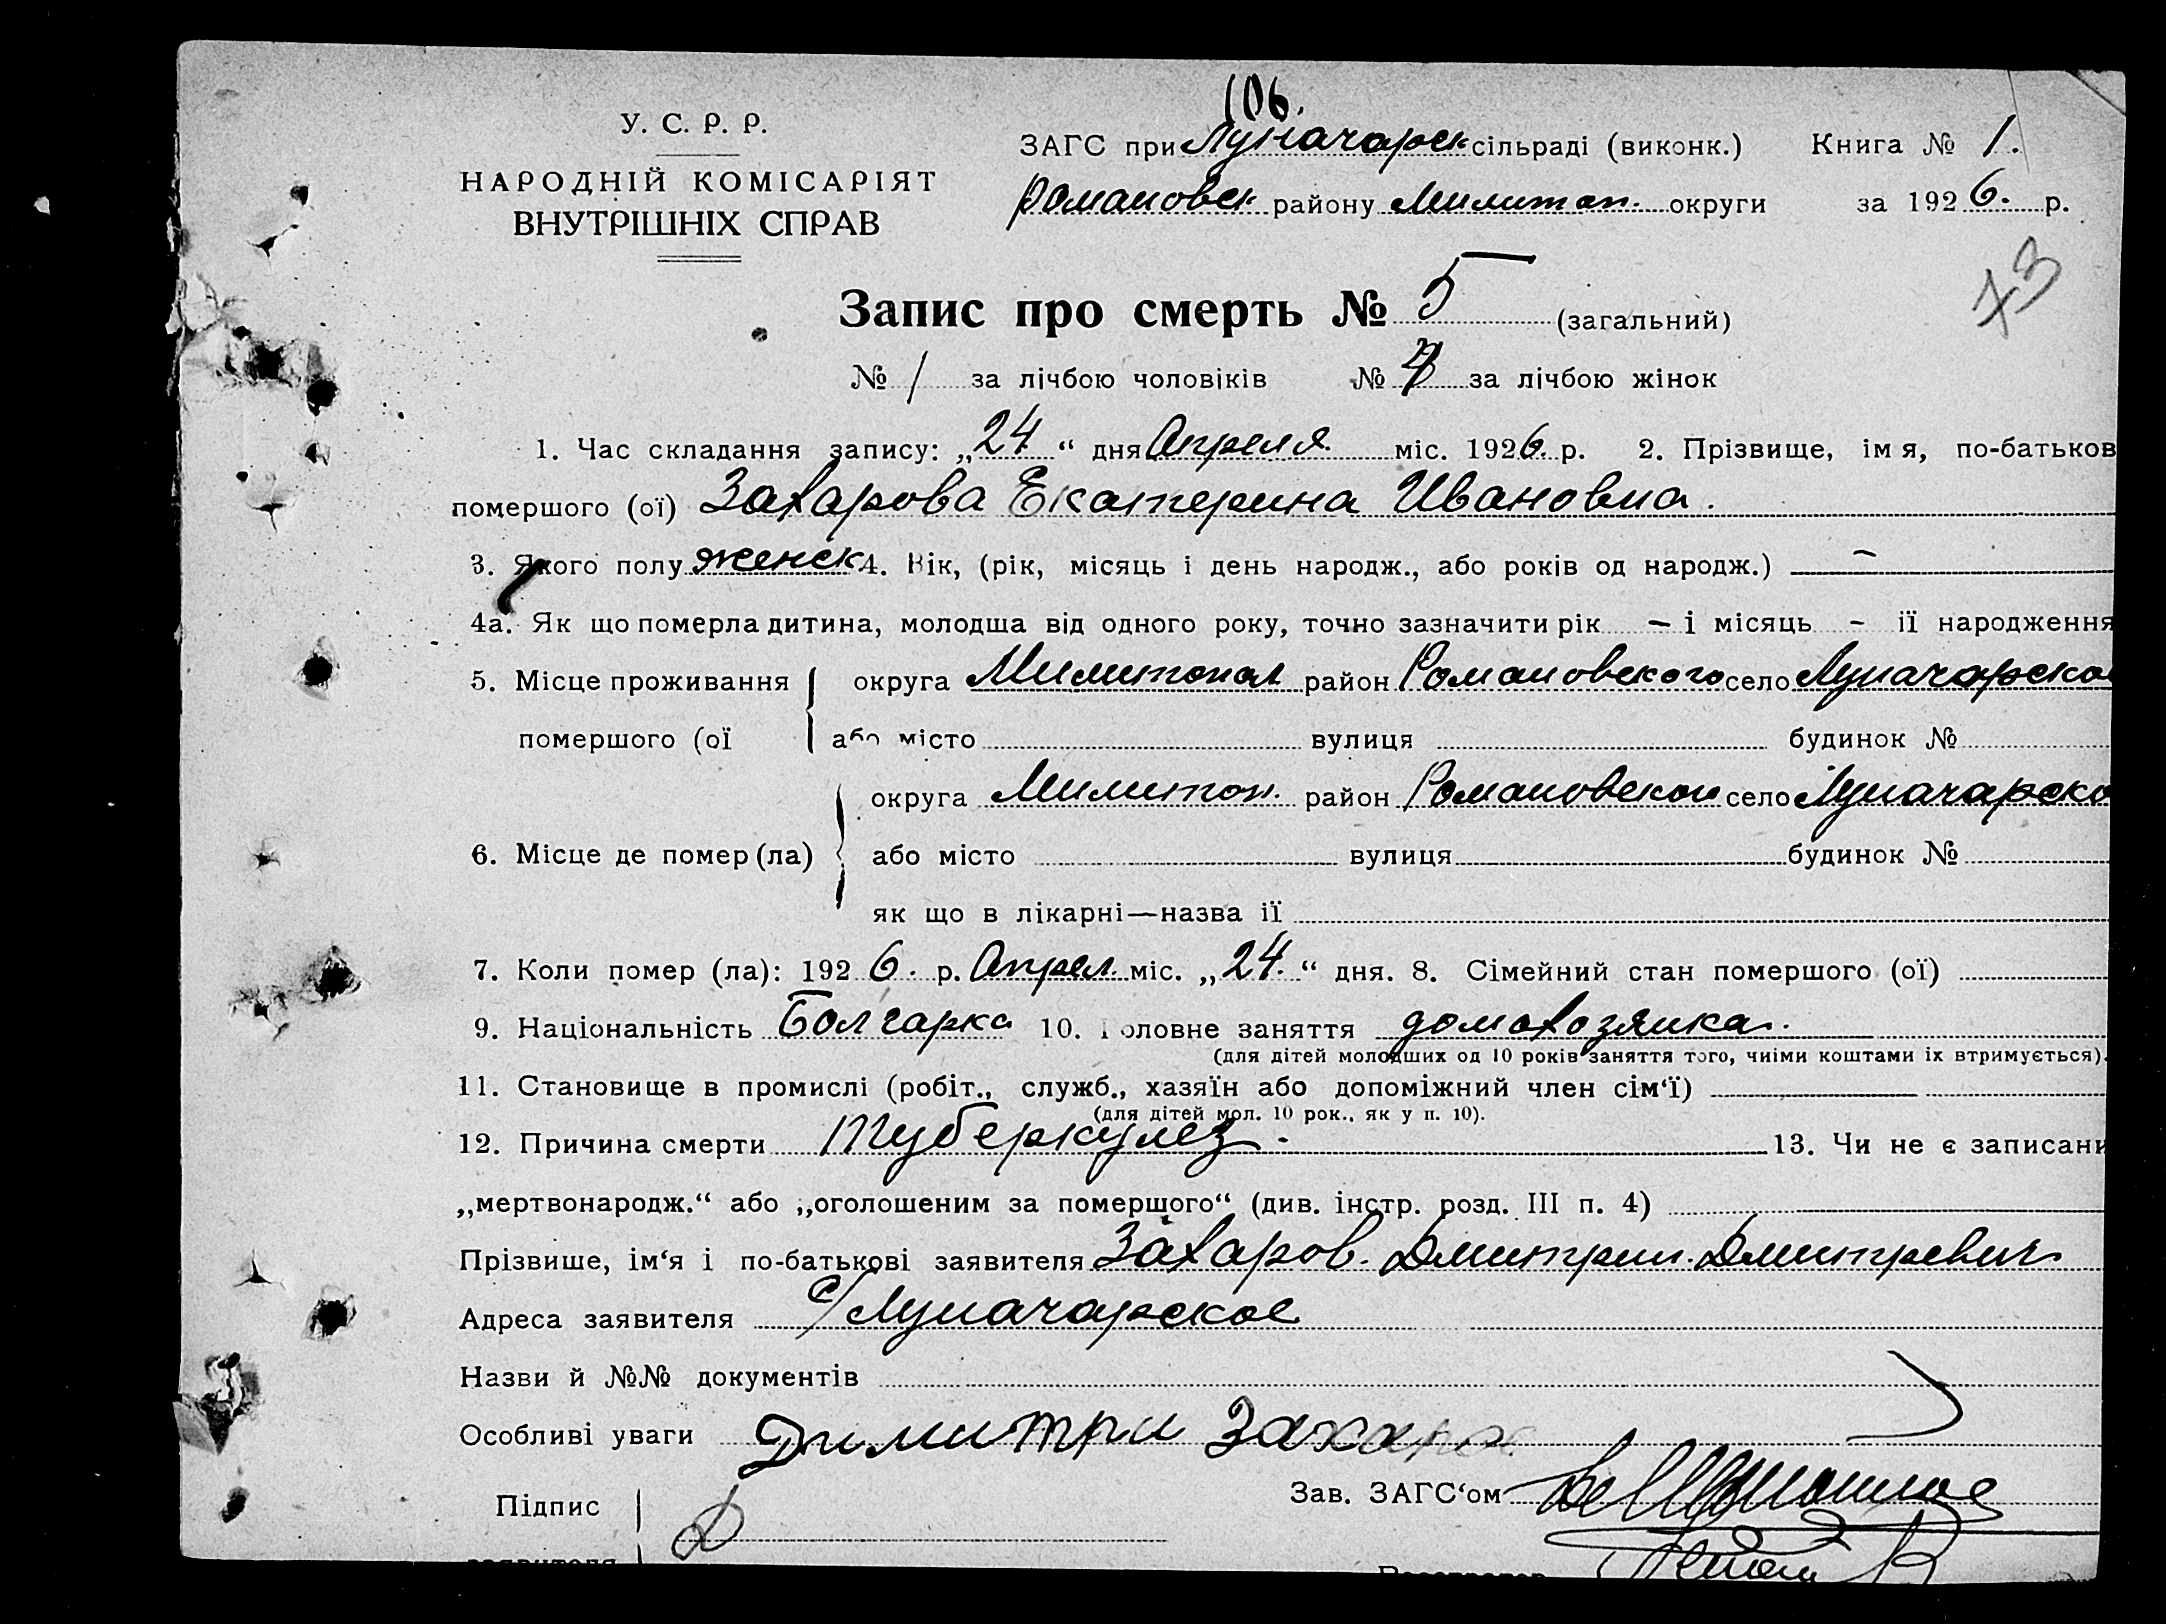 106.
У. С. Р. Р.
НАРОДНІЙ КОМІСАРІЯТ
ВНУТРІШНІХ СПРАВ
ЗАГС при Луначарск сільраді (виконк.) Книга № 1.
Романовск району Милитоп. округи за 1926. р.
73
Запис про смерть № 5 (загальний)
№ 1 за лічбою чоловіків № 4 за лічбою жінок
1. Час складання запису: „24“ дня Апреля міс. 1926. р. 2. Прізвище, ім я, по-батьков
помершого (ої) Захарова Екатерина Ивановна.
3. Якого полу женск 4. Вік, (рік, місяць і день народж., або років од народж.) —
4а. Як що померла дитина, молодша від одного року, точно зазначити рік – і місяць - ії народження
5. Місце проживання округа Милитопол район Романовского село Луначарско
помершого (ої або місто вулиця будинок №
округа Милитоп. район Романовской село Луначарско
6. Місце де помер (ла) або місто вулиця будинок №
як що в лікарні—назва ії
7. Коли помер (ла): 1926. р. Апрел. міс. „24.“ дня. 8. Сімейний стан помершого (ої)
9. Національність Болгарка 10. Головне заняття домохозяйка.
(для дітей молодших од 10 років заняття того, чиїми коштами іх втримується).
11. Становище в промислі (робіт., служб., хазяїн або допоміжний член сім‘ї)
(для дітей мол. 10 рок., як у п. 10).
12. Причина смерти Туберкулез. 13. Чи не є записани
„мертвонародж.“ або „оголошеним за помершого“ (див. інстр. розд. III п. 4)
Прізвише, ім‘я і по-батькові заявителя Захаров. Дмитрий. Дмитревич
Адреса заявителя с/Луначарское
Назви й №№ документів
Особливі уваги Димитри Захаров
Зав. ЗАГС‘ом
Підпис
заявителя